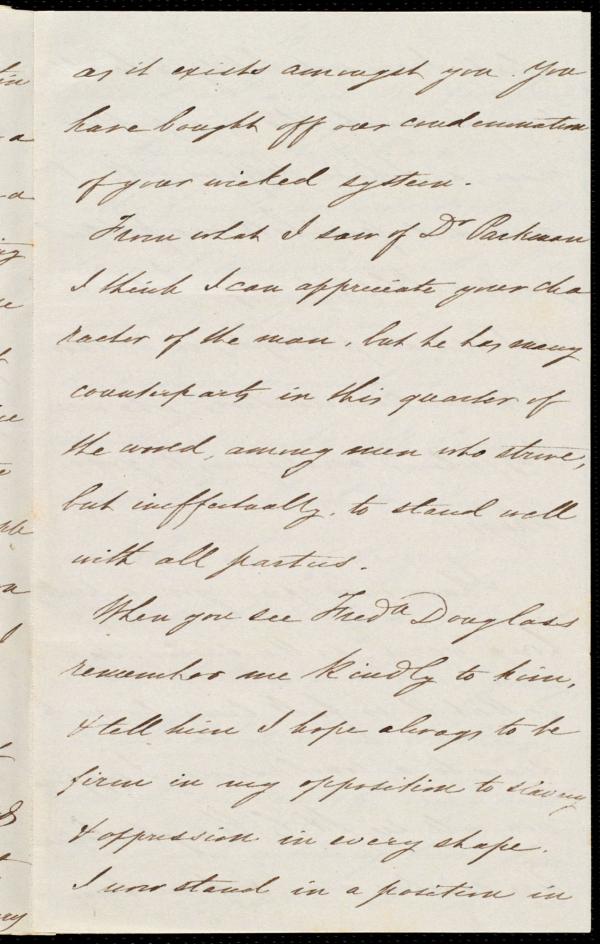 as it exists amongst you. You
have bought off our condemnation
of your wicked system.
From what I saw of Dr Parkman
I think I can appreciate your cha
racter of the man, but he has many
counterparts in this quarter of
the world, among men who strive,
but ineffectually, to stand well
with all parties.
When you see Fredk Douglass
remember me kindly to him,
& tell him I hope always to be
firm in my opposition to slavery
& oppression in every shape.
I now stand in a position in